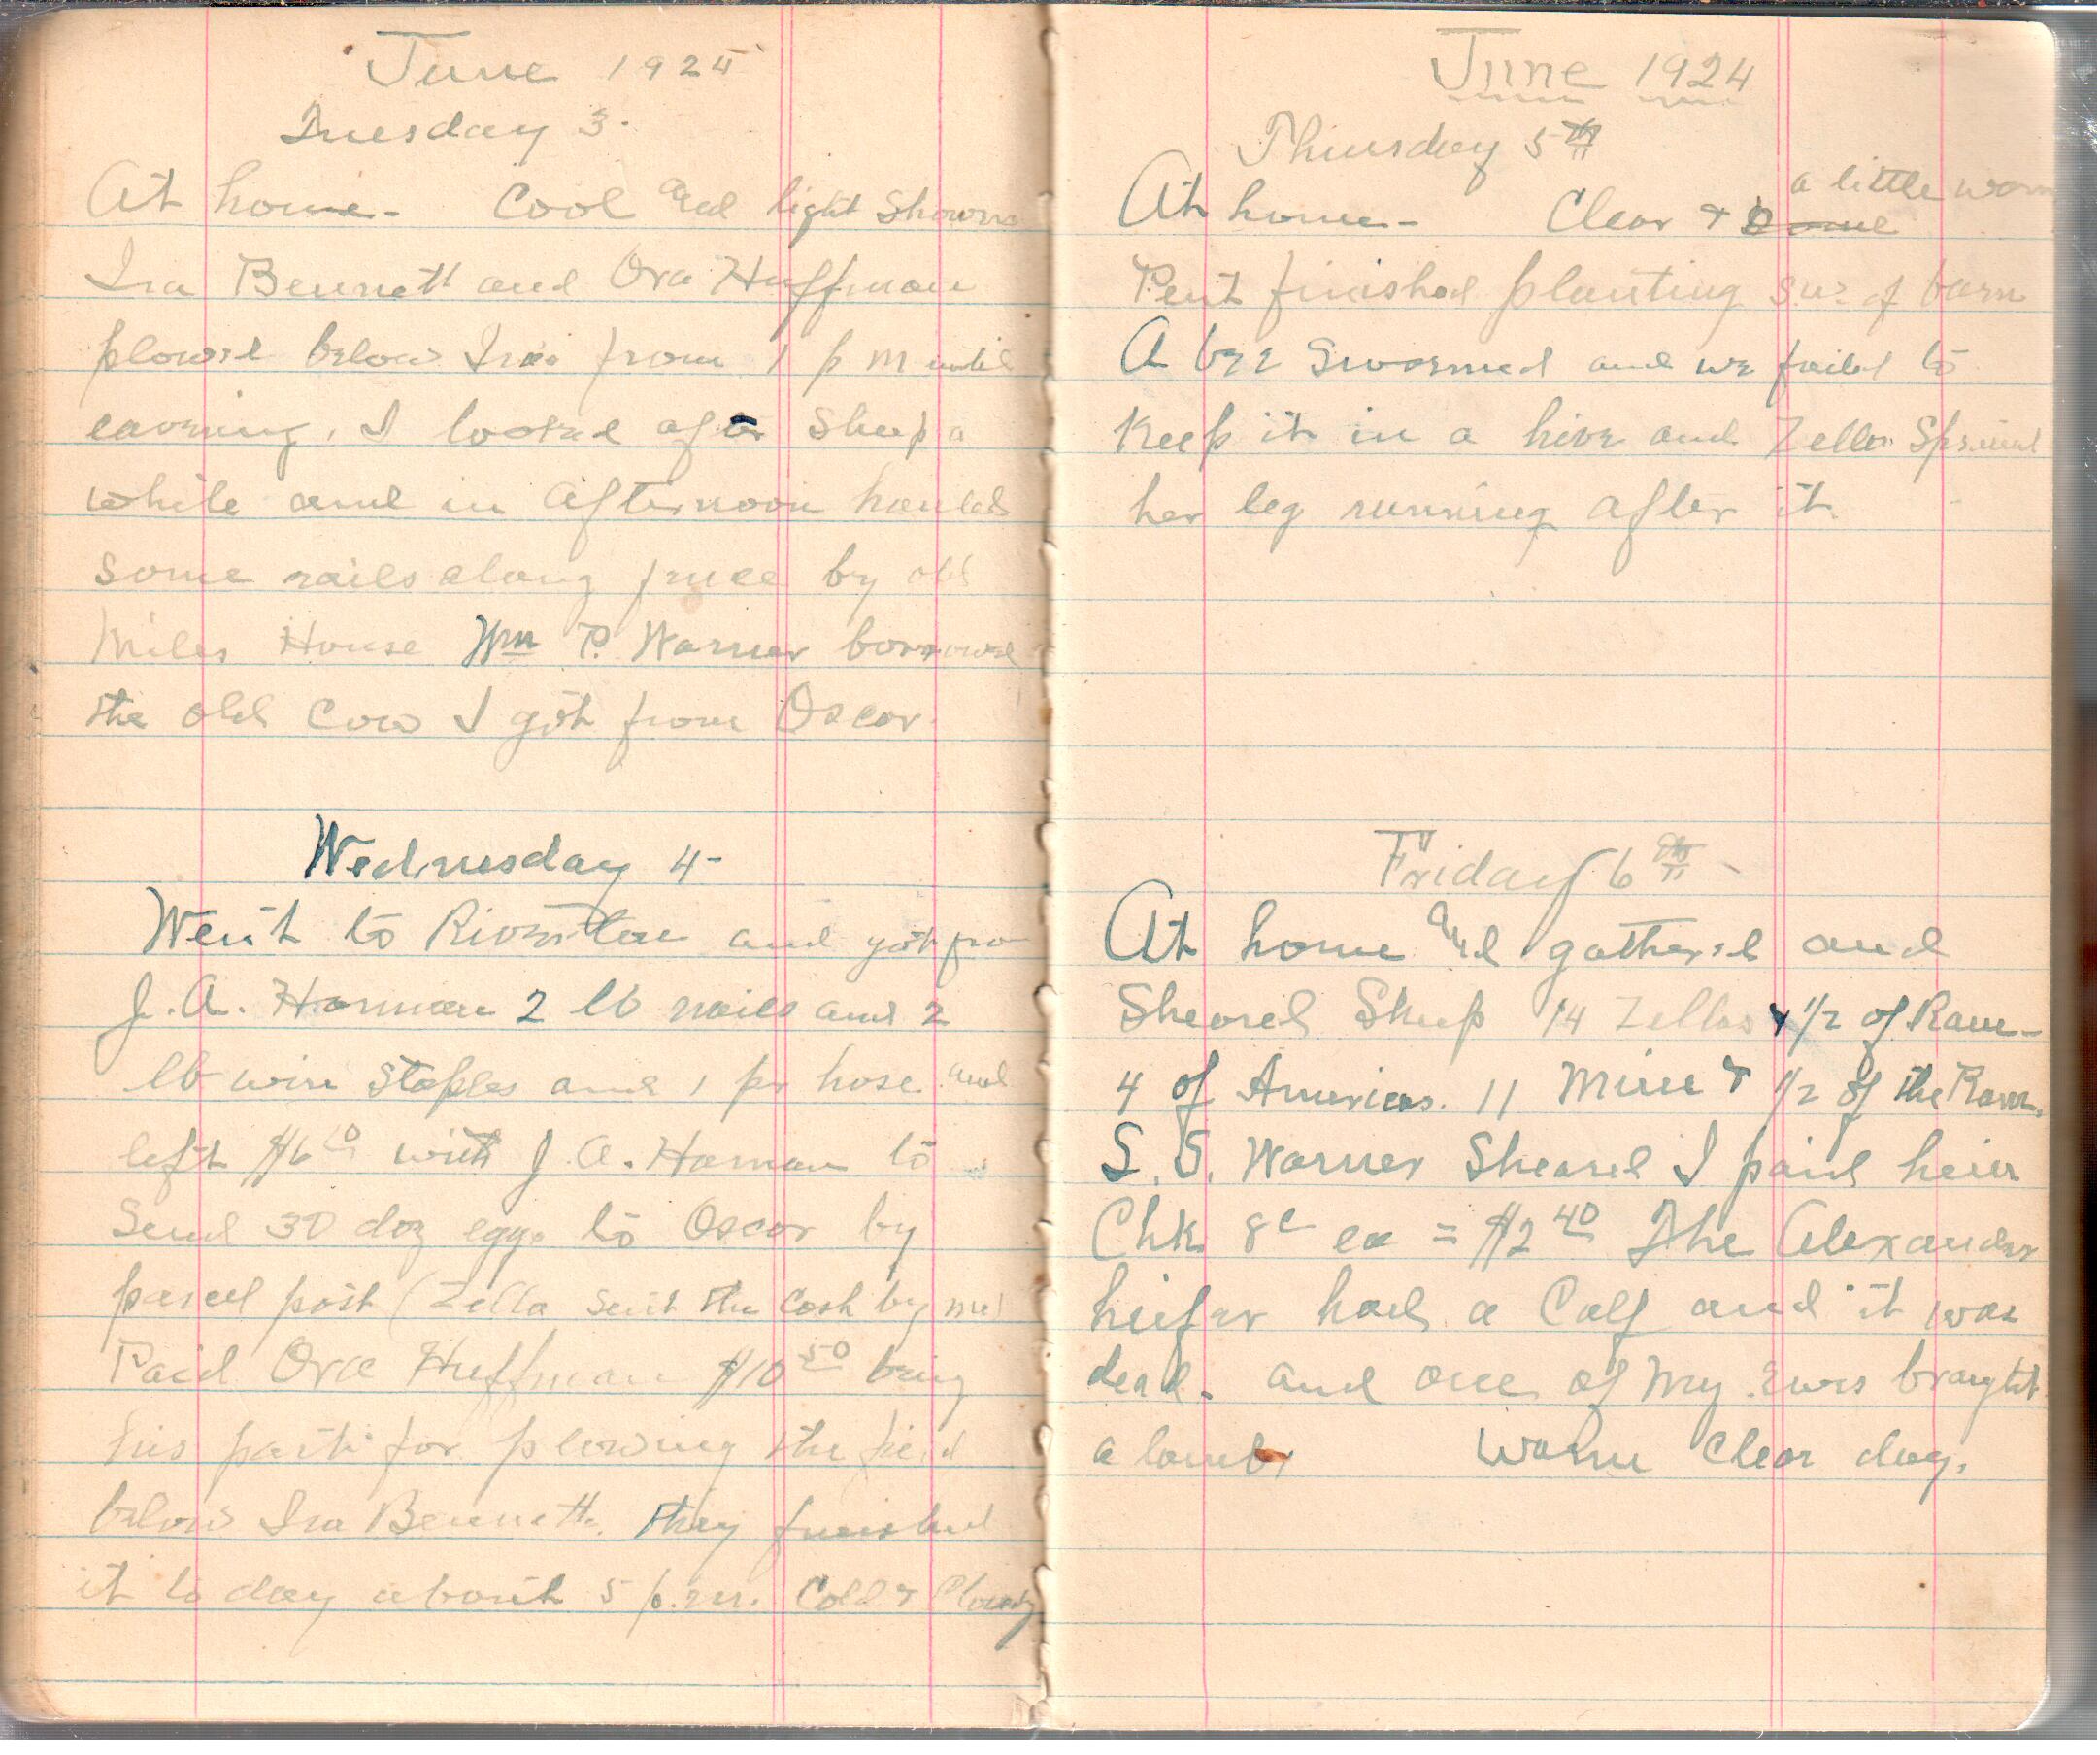 June 1924
Tuesday 3.
At home - Cool and light Showers
Ira Bennett and Ova Huffman
plowed below Iras from 1 p m until
eavning, I looked after Sheep a
while and in afternoon hauled
some rails along fence by old
Miles House Wm P. Warner borrowed
the old Cow I got from Oscar.
Wednesday 4-
Went to Riverton and got from
J. A. Harman 2 lb nails and 2
lb wire Staples and 1 pr hose and
left $6 with J. A. Harman to
Send 30 doz eggs to Oscar by
parcel post (Zella sent the Cash by me)
Paid Ova Huffman $10 50 being
his part for plowing the field
below Ira Bennett. they finished
it to day about 5 p.m. Cold & Cloudy
June 1924
Thursday 5th
a little warm
At home - Clear &
Pent finished planting S.W. of barn
A bee Swormed and we faild to
Keep it in a hive and Zella Sprained
her leg running after it.
Friday 6th -
At home and gathered and
Sheared Sheep 14 Zellas & 1/2 of Ram -
4 of Americas. 11 Mine & 1/2 of the Ram.
S. S. Warner Sheared I paid heim
Chk 8c ea = $2 40 The Alexander
heifer had a Calf and it was
dead. and one of my Ewes braught
a lamb Warm Clear day.